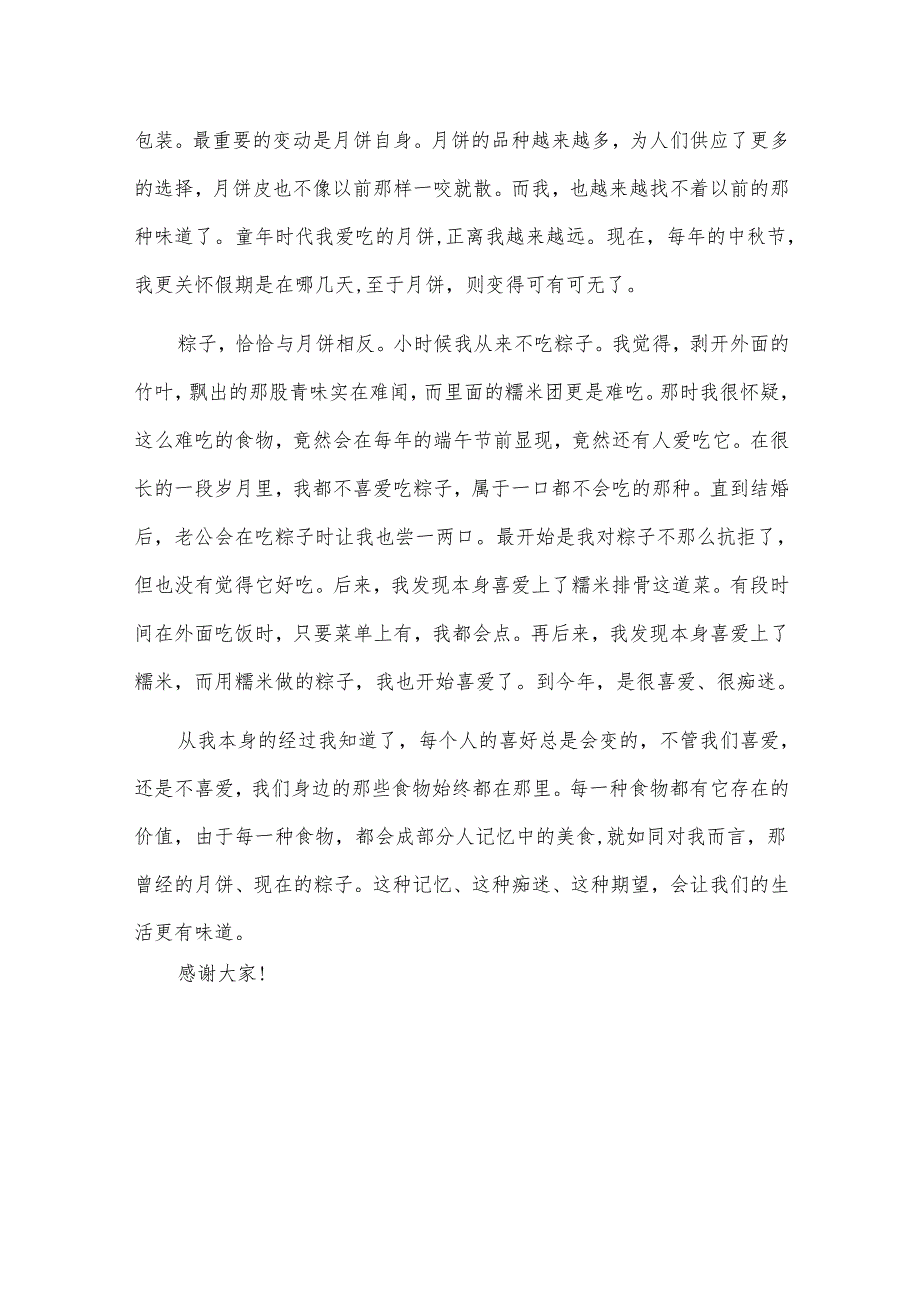 包装。最重要的变动是月饼自身。月饼的品种越来越多，为人们供应了更多
的选择，月饼皮也不像以前那样一咬就散。而我，也越来越找不着以前的那
种味道了。童年时代我爱吃的月饼,正离我越来越远。现在，每年的中秋节，
我更关怀假期是在哪几天,至于月饼，则变得可有可无了。
粽子，恰恰与月饼相反。小时候我从来不吃粽子。我觉得，剥开外面的
竹叶，飘出的那股青味实在难闻，而里面的糯米团更是难吃。那时我很怀疑，
这么难吃的食物，竟然会在每年的端午节前显现，竟然还有人爱吃它。在很
长的一段岁月里，我都不喜爱吃粽子，属于一口都不会吃的那种。直到结婚
后，老公会在吃粽子时让我也尝一两口。最开始是我对粽子不那么抗拒了，
但也没有觉得它好吃。后来，我发现本身喜爱上了糯米排骨这道菜。有段时
间在外面吃饭时，只要菜单上有，我都会点。再后来，我发现本身喜爱上了
糯米，而用糯米做的粽子，我也开始喜爱了。到今年，是很喜爱、很痴迷。
从我本身的经过我知道了，每个人的喜好总是会变的，不管我们喜爱，
还是不喜爱，我们身边的那些食物始终都在那里。每一种食物都有它存在的
价值，由于每一种食物，都会成部分人记忆中的美食,就如同对我而言，那
曾经的月饼、现在的粽子。这种记忆、这种痴迷、这种期望，会让我们的生
活更有味道。
感谢大家!